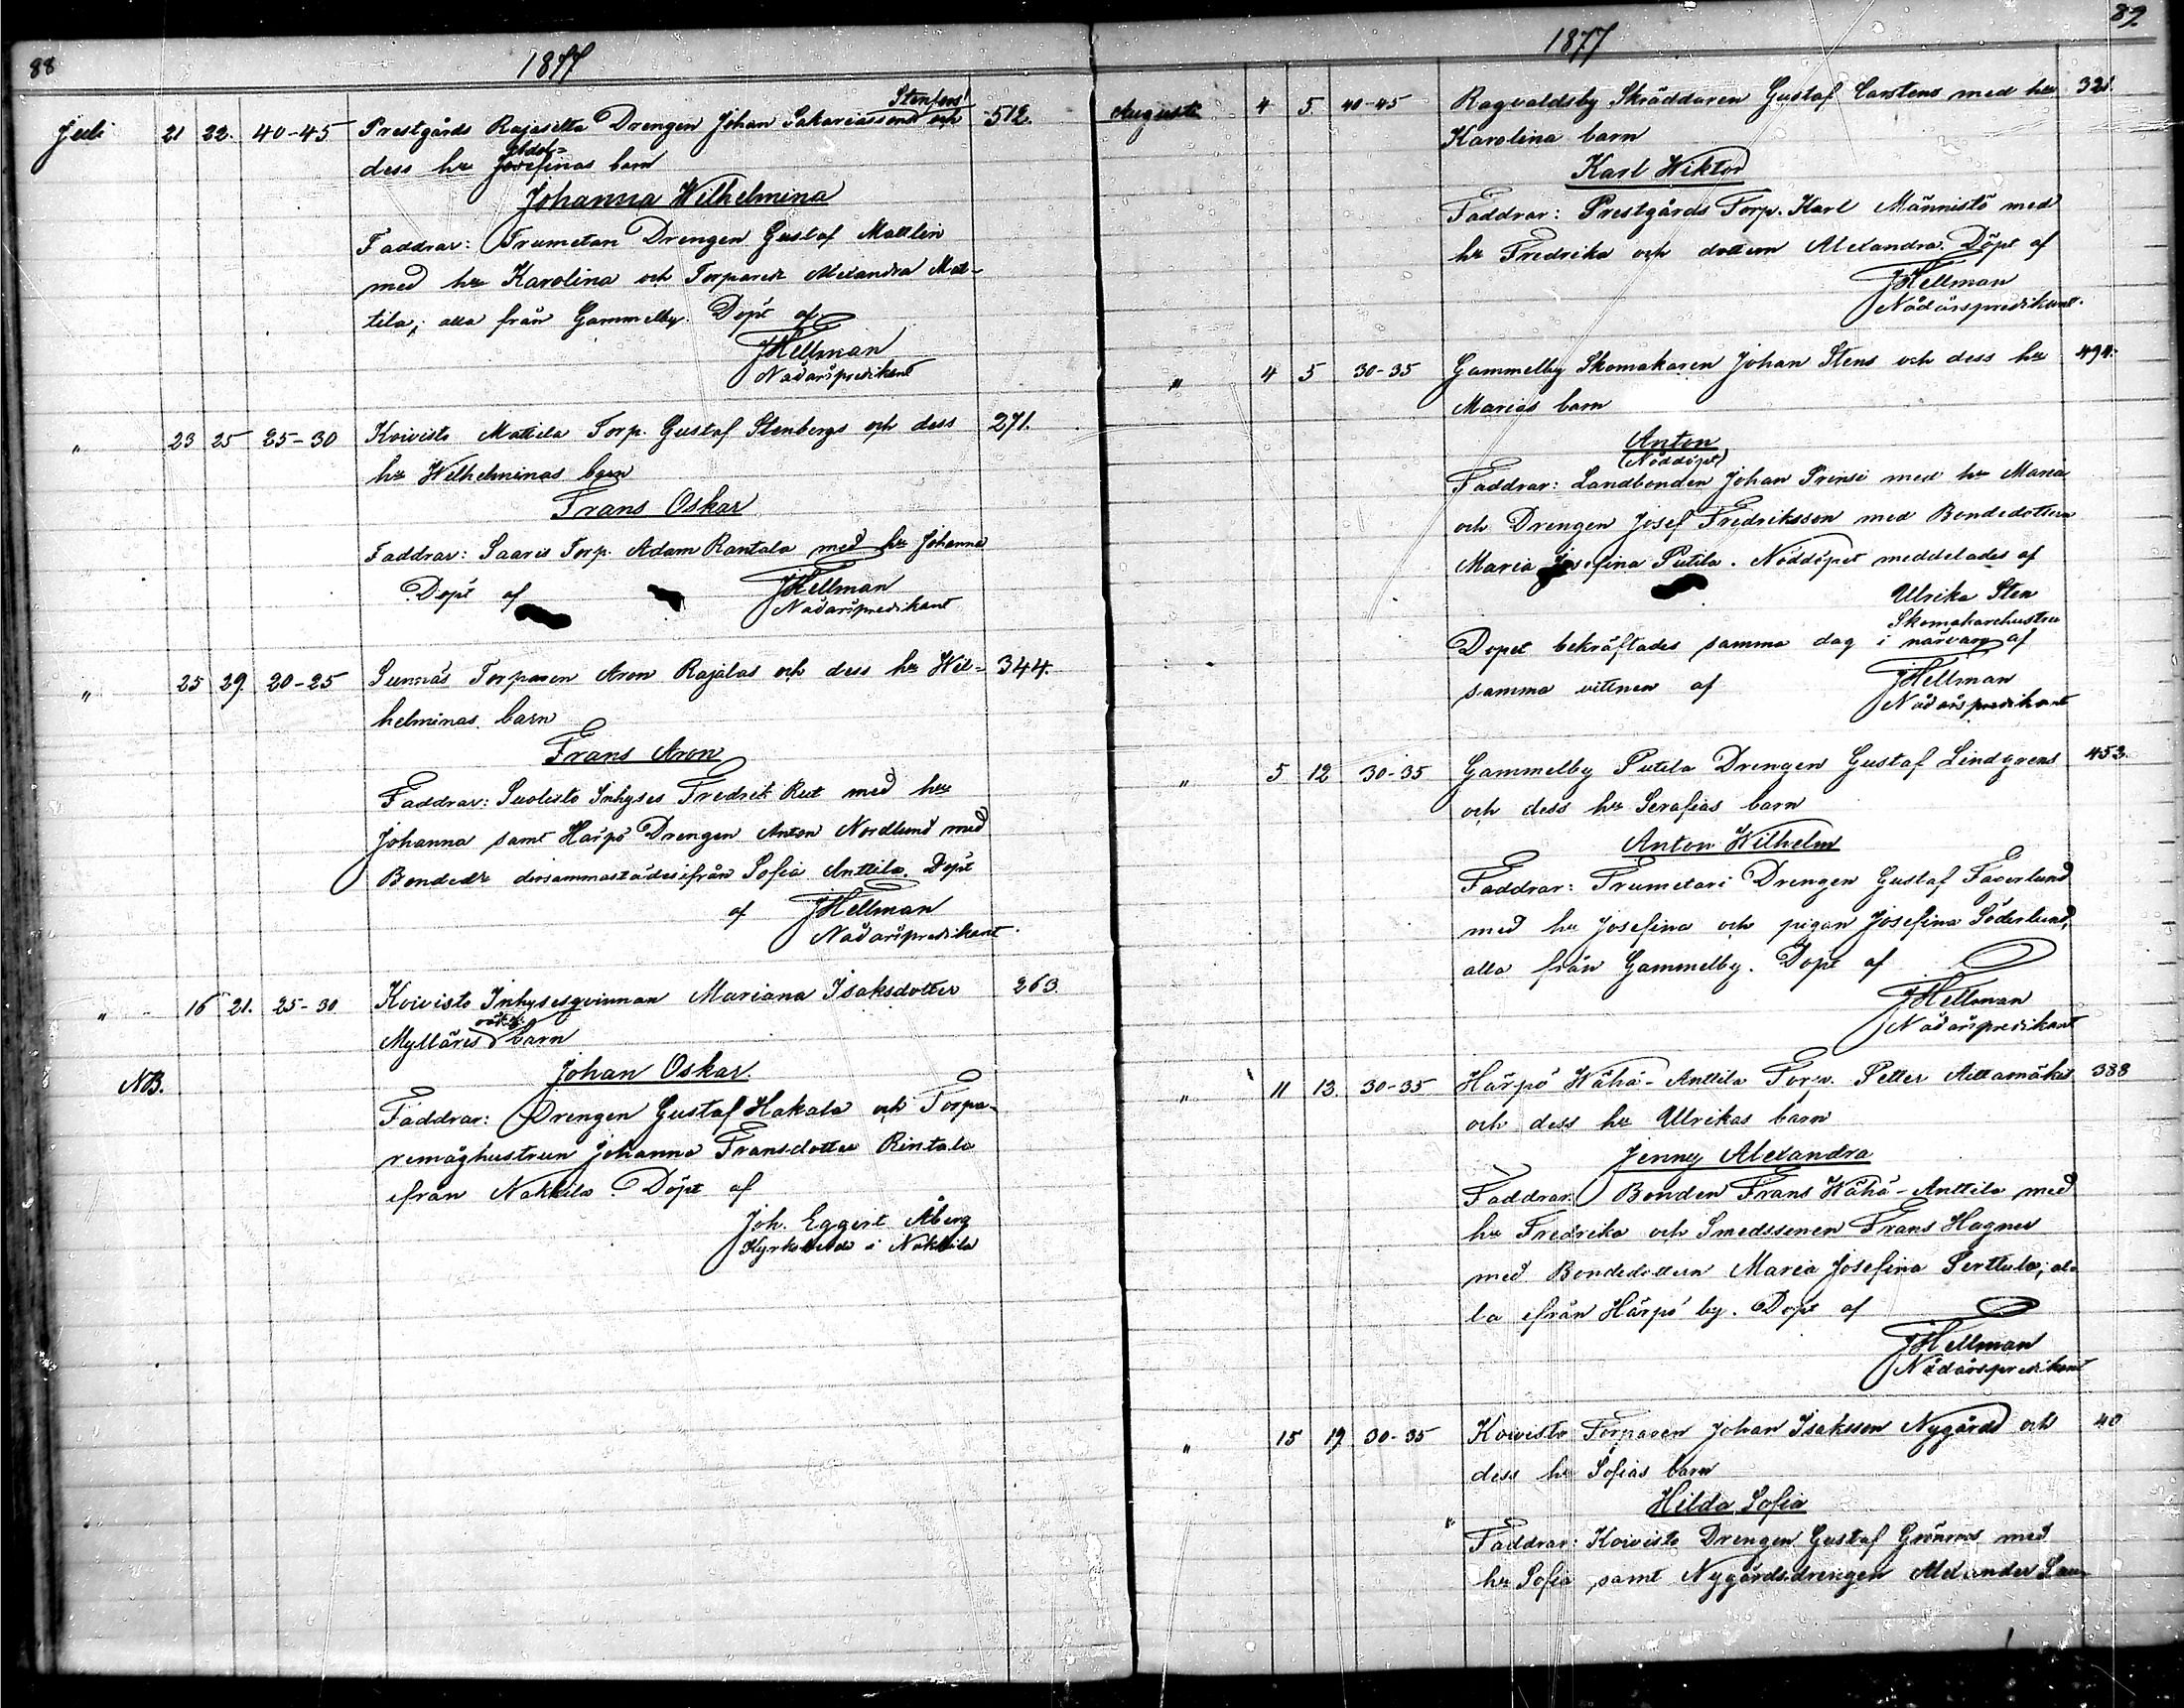 88
1877
Juli 21 22. 40-45 Prestgårds Rajasilta Drengen Johan Sakariassons Stenfors' och 512.
dess hu Adolfinas barn
Johanna Wilhelmina
Faddrar: Trumetari Drengen Gustaf Mattlin
med hu Karolina och Torparedr Alexandra Mat-
tila, alla från Gammelby. Döpt af
JHellman
Nådårspredikant
" 23 25 25-30 Koivisto Mattila Torp. Gustaf Stenbergs och dess 271.
hu Wilhelminas barn
Frans Oskar
Faddrar: Saaris Torp. Adam Rantala med hu Johanna
Döpt af JHellman
Nådårspredikant
" 25 29. 20-25 Sunnäs Torparen Aron Rajalas och dess hu Wil- 344.
helminas barn
Frans Aron
Faddrar: Suolisto Inhyses Fredrik Rut med hu
Johanna samt Harpö Drengen Anton Nordlund med
Bondedr dersammastädesifrån Sofia Anttila. Döpt
af JHellman
Nådårspredikant.
" 16 21. 25-30 Koivisto Inhysesqvinnan Mariana Isaksdotter 263.
Mylläris oäkta barn
NB. Johan Oskar
Faddrar: Drengen Gustaf Hakala och Torpa-
remåghustrun Johanna Fransdotter Rintala
ifrån Nakkila. Döpt af
Joh. Eggert Åberg
Kyrkoherde i Nakkila
89
1877
Augusti 4 5. 40-45 Ragvaldsby Skräddaren Gustaf Carstens med hu 321.
Karolina barn
Karl Wiktor
Faddrar: Prestgårds Torp. Karl Männistö med
hu Fredrika och dottern Alexandra. Döpt af
JHellman
Nådårspredikant.
" 4 5 30-35 Gammelby Skomakaren Johan Stens och dess hu 494.
Marias barn
Anton
(Nöddöpt)
Faddrar: Landbonden Johan Prinsi med hu Maria
och Drengen Josef Fredriksson med Bondedottern
Maria Josefina Putila. Nöddöpet meddelades af
Ulrika Sten
Skomakarehustru
Dopet bekräftades samma dag i närvaro af
samma vittnen af JHellman
Nådårspredikant
" 5 12 30-35 Gammelby Putila Drengen Gustaf Lindgrens 453.
och dess hu Serafias barn
Anton Wilhelm
Faddrar: Trumetari Drengen Gustaf Fagerlund
med hu Josefina och pigan Josefina Söderlund,
alla från Gammelby. Döpt af
JHellman
Nådårspredikant
" 11 13. 30-35 Härpö Wähä-Anttila Torp. Petter Aittamäkis 388
och dess hu Ulrikas barn
Jenny Alexandra
Faddrar: Bonden Frans Wähä-Anttila med
hu Fredrika och Smedssonen Frans Hagner
med Bondedottern Maria Josefina Serttula; al-
la ifrån Härpö by. Döpt af
JHellman
Nådårspredikant
" 15 19 30-35 Koivisto Torparen Johan Isaksson Nygårds och 40
dess hu Sofias barn
Hilda Sofia
Faddrar: Koivisto Drengen Gustaf Grönroos med
hu Sofia samt Nygårdsdrengen Alexander Lau-